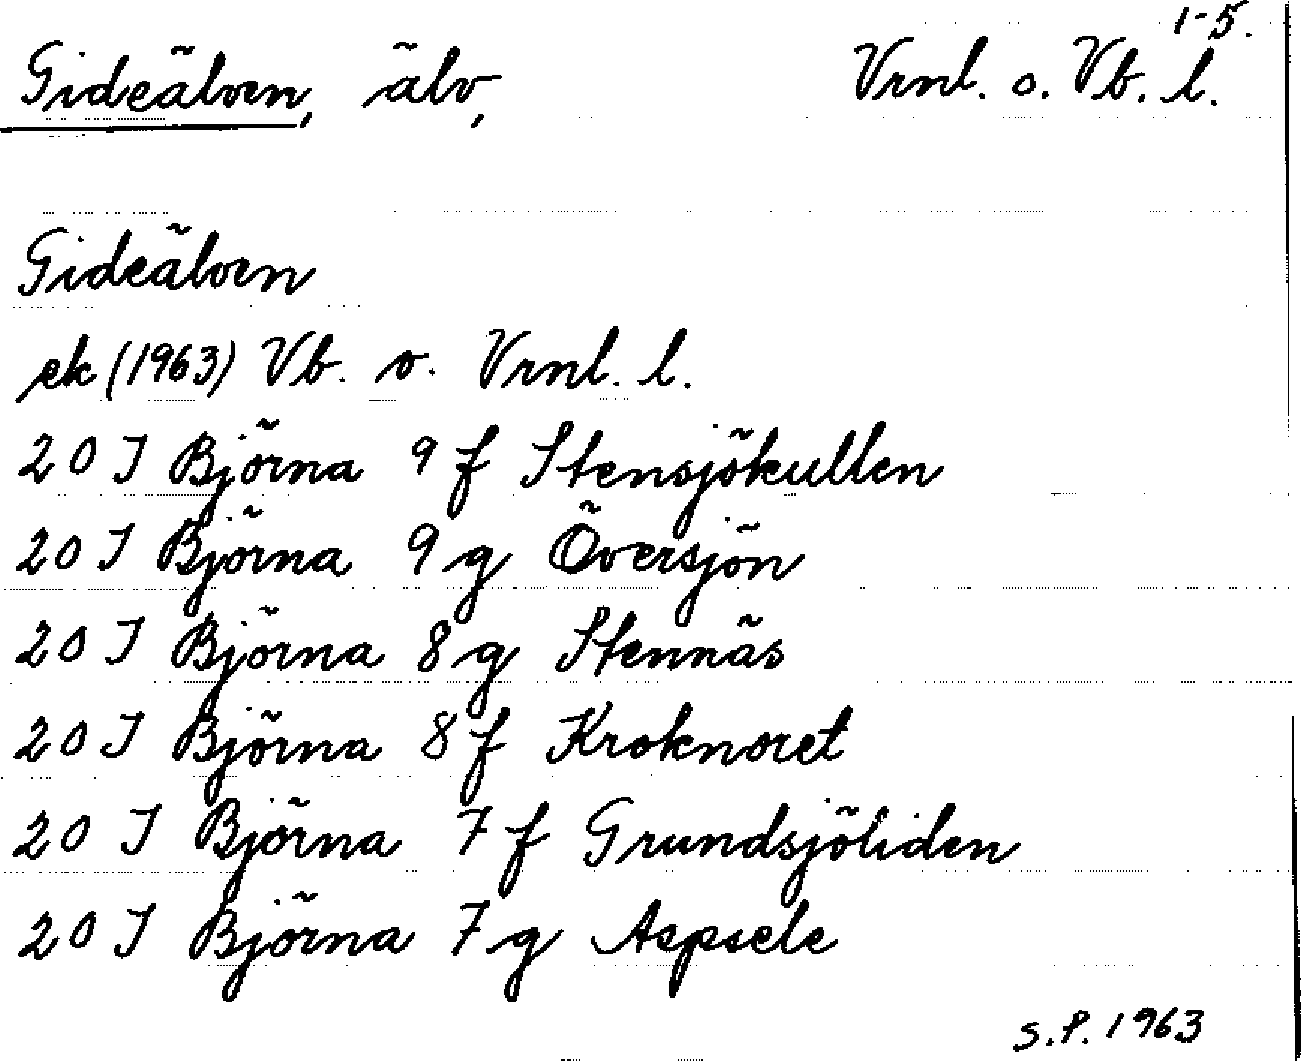 1-5.
Gideälven, älv, Vrnl. o. Vb. l.
Gideälven
ek (1963) Vb. o. Vrnl. l.
20 I Björna 9 f Stensjökullen
20 I Björna 9 g Översjön
20 I Björna 8 g Stennäs
20 I Björna 8 f Kroknoret
20 I Björna 7 f Grundsjöliden
20 I Björna 7 g Aspsele
S.P. 1963